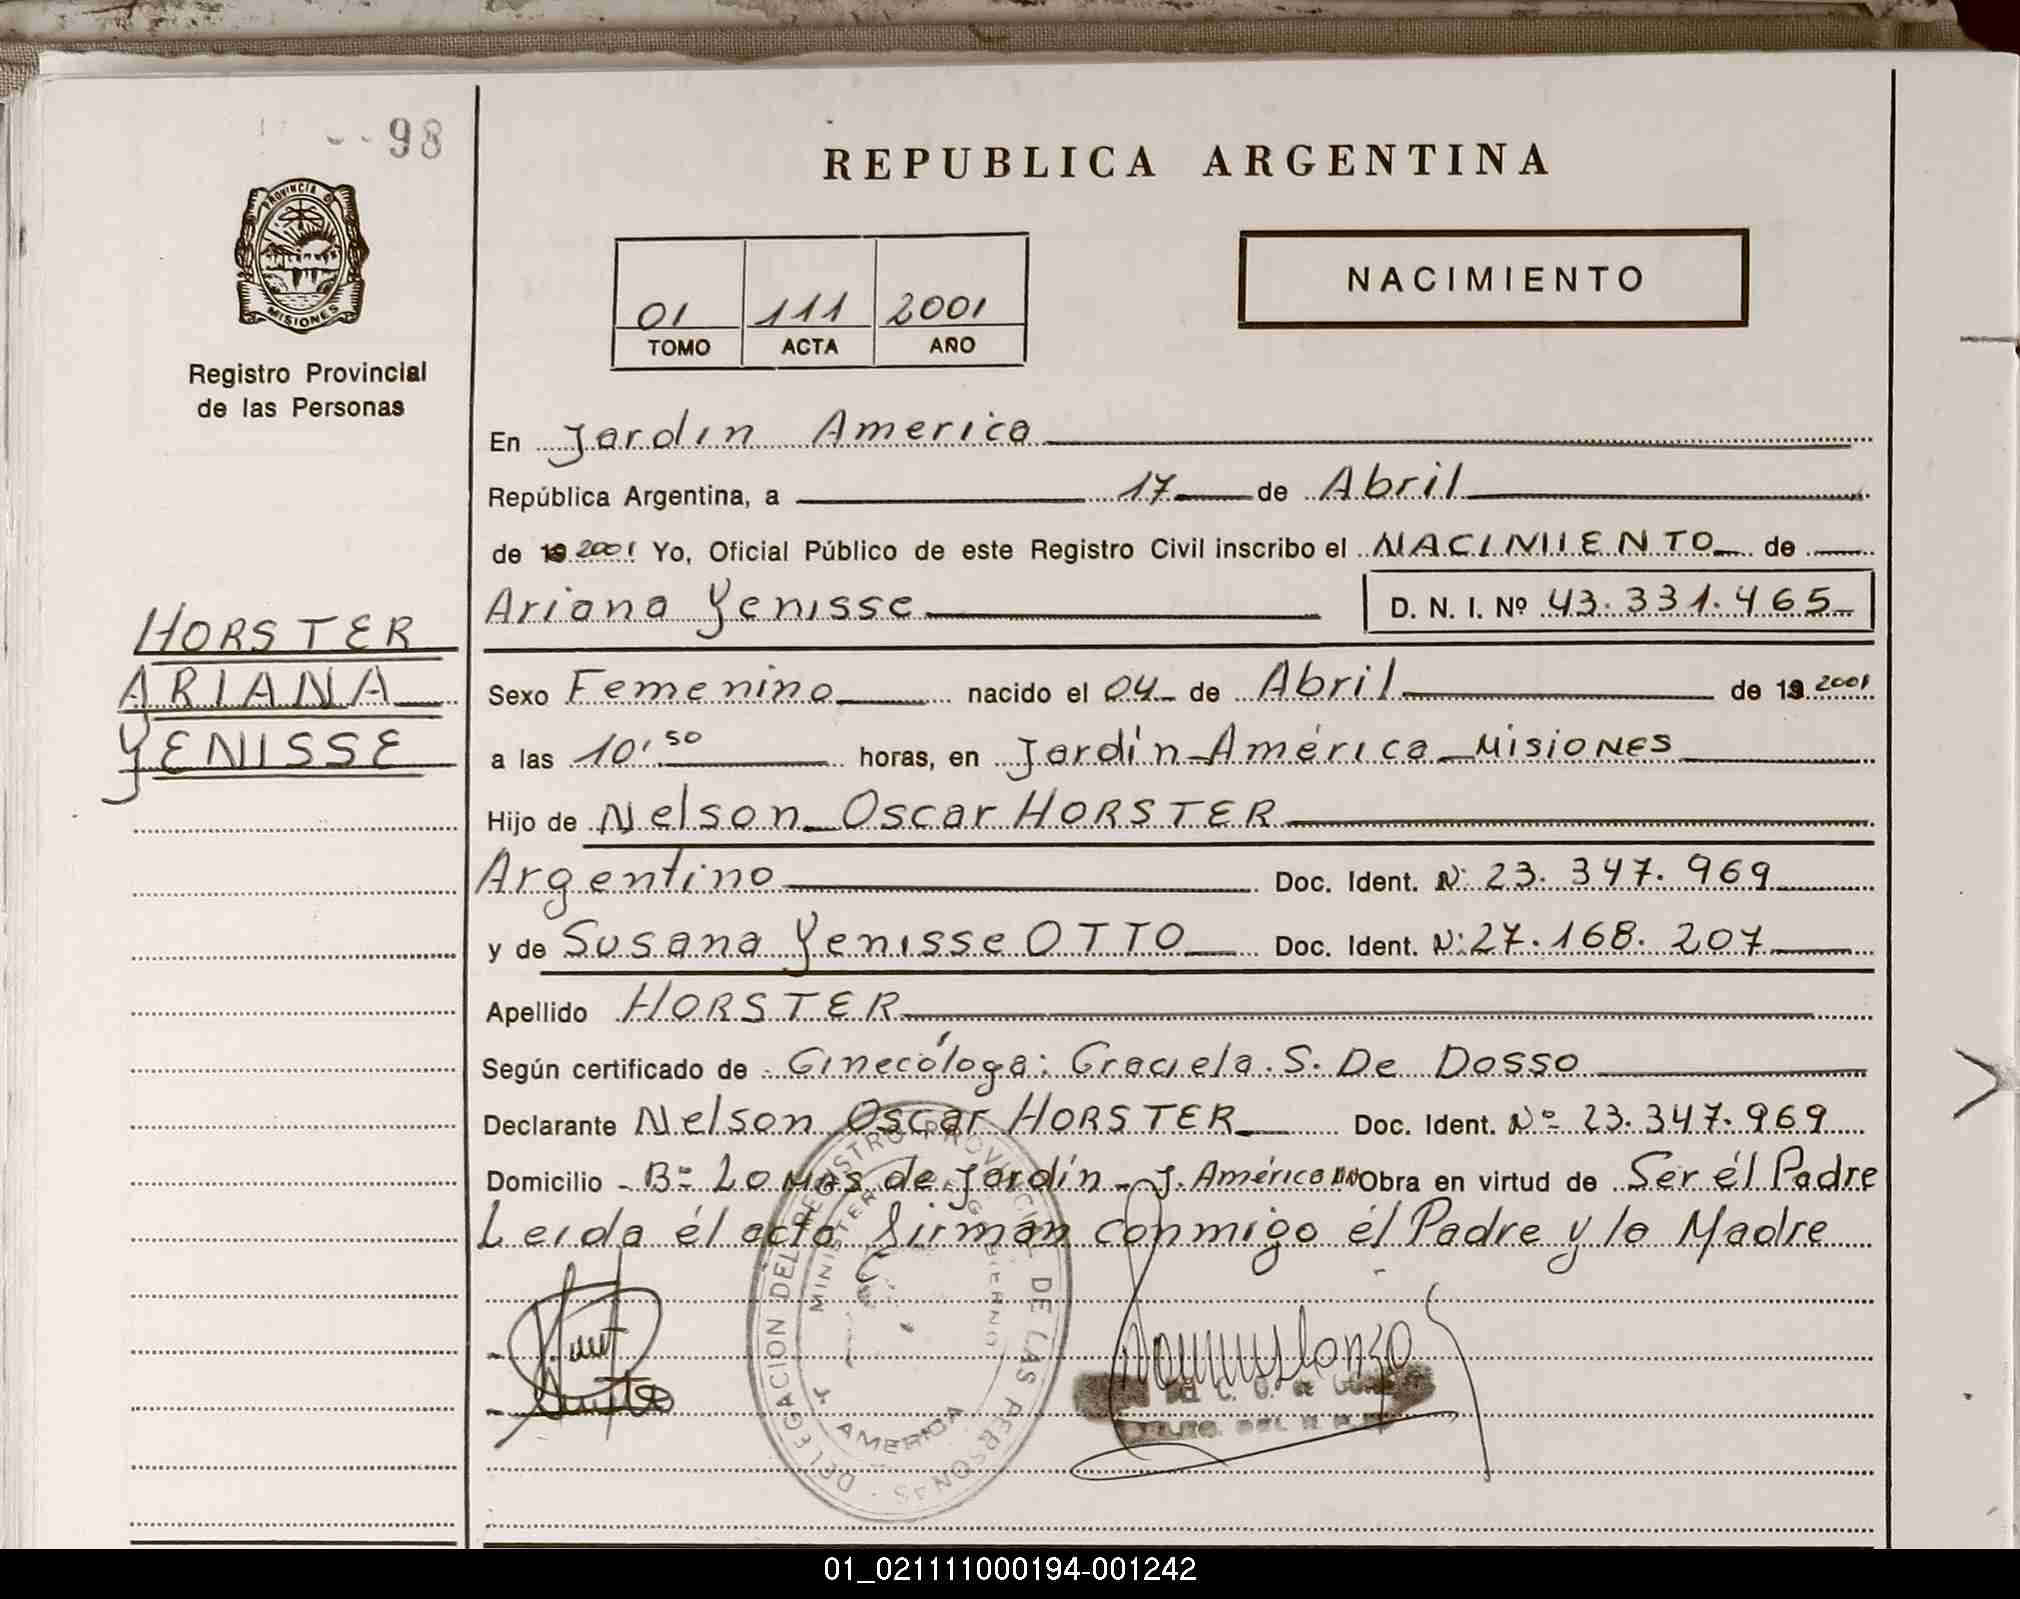 98
PROVINCIA D
MISIONES
Registro Provincial
de las Personas
HORSTER
ARIANA
YENISSE
REPUBLICA ARGENTINA
01 111 2001
TOMO ACTA AÑO
NACIMIENTO
En Jardin America
República Argentina, a 17 de Abril
de 19 2001 Yo, Oficial Público de este Registro Civil inscribo el NACIMIENTO de
Ariana Yenisse D. N. I. Nº 43.331.465
Sexo Femenino nacido el 04 de Abril de 19 2001
a las 10'50 horas, en Jardín América Misiones
Hijo de Nelson Oscar HORSTER
Argentino Doc. Ident. Nº 23.347.969
y de Susana Yenisse OTTO Doc. Ident. Nº 27.168.207
Apellido HORSTER
Según certificado de Ginecóloga: Graciela S. De Dosso
Declarante Nelson Oscar HORSTER Doc. Ident. Nº 23.347.969
Domicilio Bº Lomas de Jardín - J. América Obra en virtud de Ser él Padre
Leida él acta firman conmigo él Padre y la Madre
DELEGACION DEL REGISTRO PROVINCIAL DE LAS PERSONAS
AMERICA
01_021111000194-001242